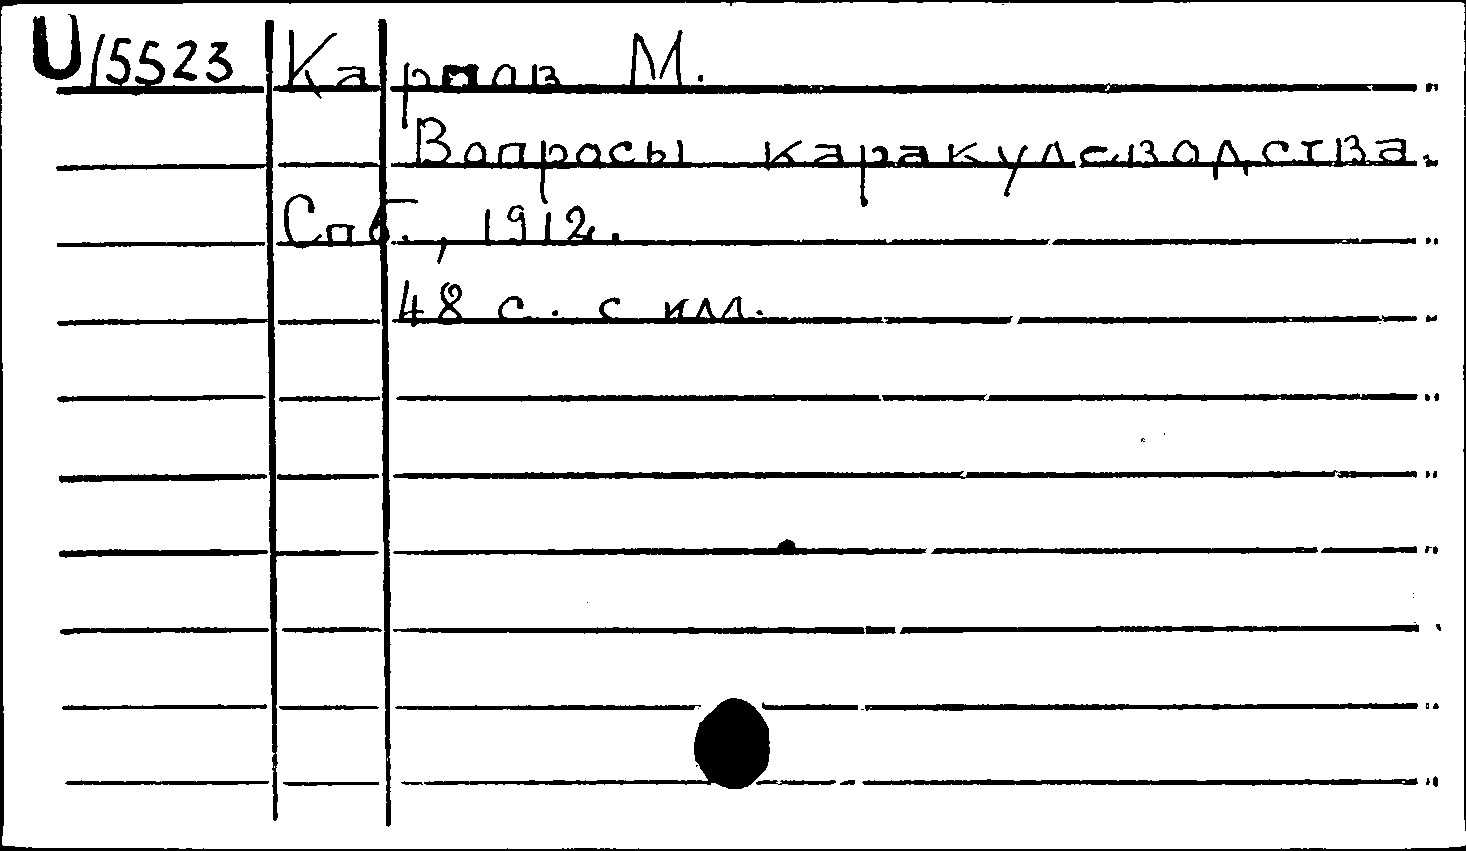 U/5523 Карпов М.
Вопросы каракулеводства.
Спб., 1912.
48 с. с илл.